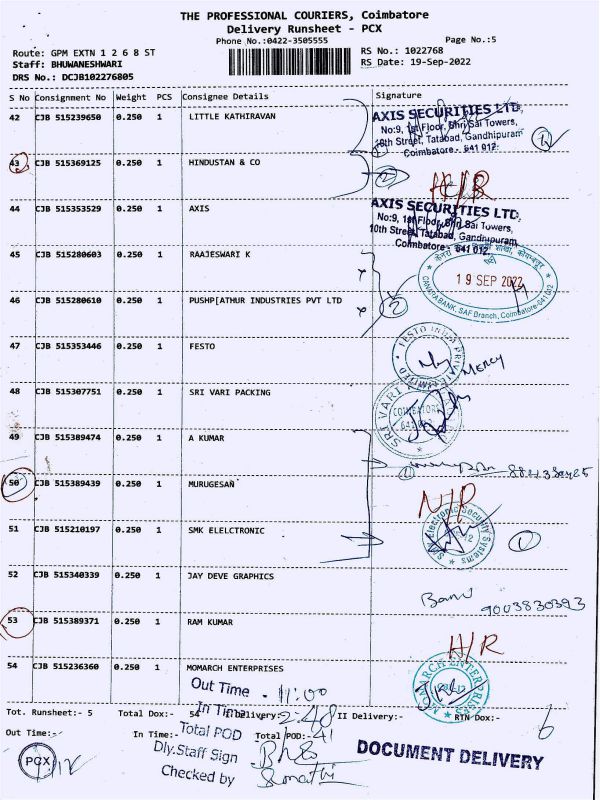 THE PROFESSIONAL COURIERS, Coimbatore
Delivery Runsheet - PCX
Phone No.:0422-3505555
Page No.:5
Route: GPM EXTN 1 2 6 8 ST
RS No.: 1022768
Staff: BHUWANESHWARI
RS Date: 19-Sep-2022
DRS No.: DCJB102276805
S No Consignment No Weight PCS Consignee Details Signature
42 CJB 515239650 0.250 1 LITTLE KATHIRAVAN
AXIS SECURITIES LTD,
No:9, 1st Floor, Shri Sai Towers,
10th Street, Tatabad, Gandhipuram
Coimbatore - 641 012.
43 CJB 515369125 0.250 1 HINDUSTAN & CO
2
44 CJB 515353529 0.250 1 AXIS
AXIS SECURITIES LTD.
No:9, 1st Floor, Shri Sai Towers,
10th Street, Tatabad, Gandhipuram,
Coimbatore - 641 012.
45 CJB 515280603 0.250 1 RAAJESWARI K
19 SEP 2022
CANARA BANK, SAF Branch, Coimbatore-641 012
46 CJB 515280610 0.250 1 PUSHP[ATHUR INDUSTRIES PVT LTD
2
47 CJB 515353446 0.250 1 FESTO
FESTO INDIA PRIVATE LIMITED
MERCY
48 CJB 515307751 0.250 1 SRI VARI PACKING
SRI VARI
COIMBATORE
49 CJB 515389474 0.250 1 A KUMAR
50 CJB 515389439 0.250 1 MURUGESAN
N/R
51 CJB 515210197 0.250 1 SMK ELELCTRONIC
Electronic Security Systems
1
52 CJB 515340339 0.250 1 JAY DEVE GRAPHICS
Banu
9003830393
53 CJB 515389371 0.250 1 RAM KUMAR
N/R
54 CJB 515236360 0.250 1 MOMARCH ENTERPRISES
MONARCH ENTERPRISES
Out Time - 11:00
Tot. Runsheet:- 5 Total Dox:- 54 Delivery:- II Delivery:- RTN Dox:- 6
In Time 2.48
Out Time:- In Time:- Total POD:- 41
Total POD
Dly.Staff Sign
Checked by
PCX
DOCUMENT DELIVERY